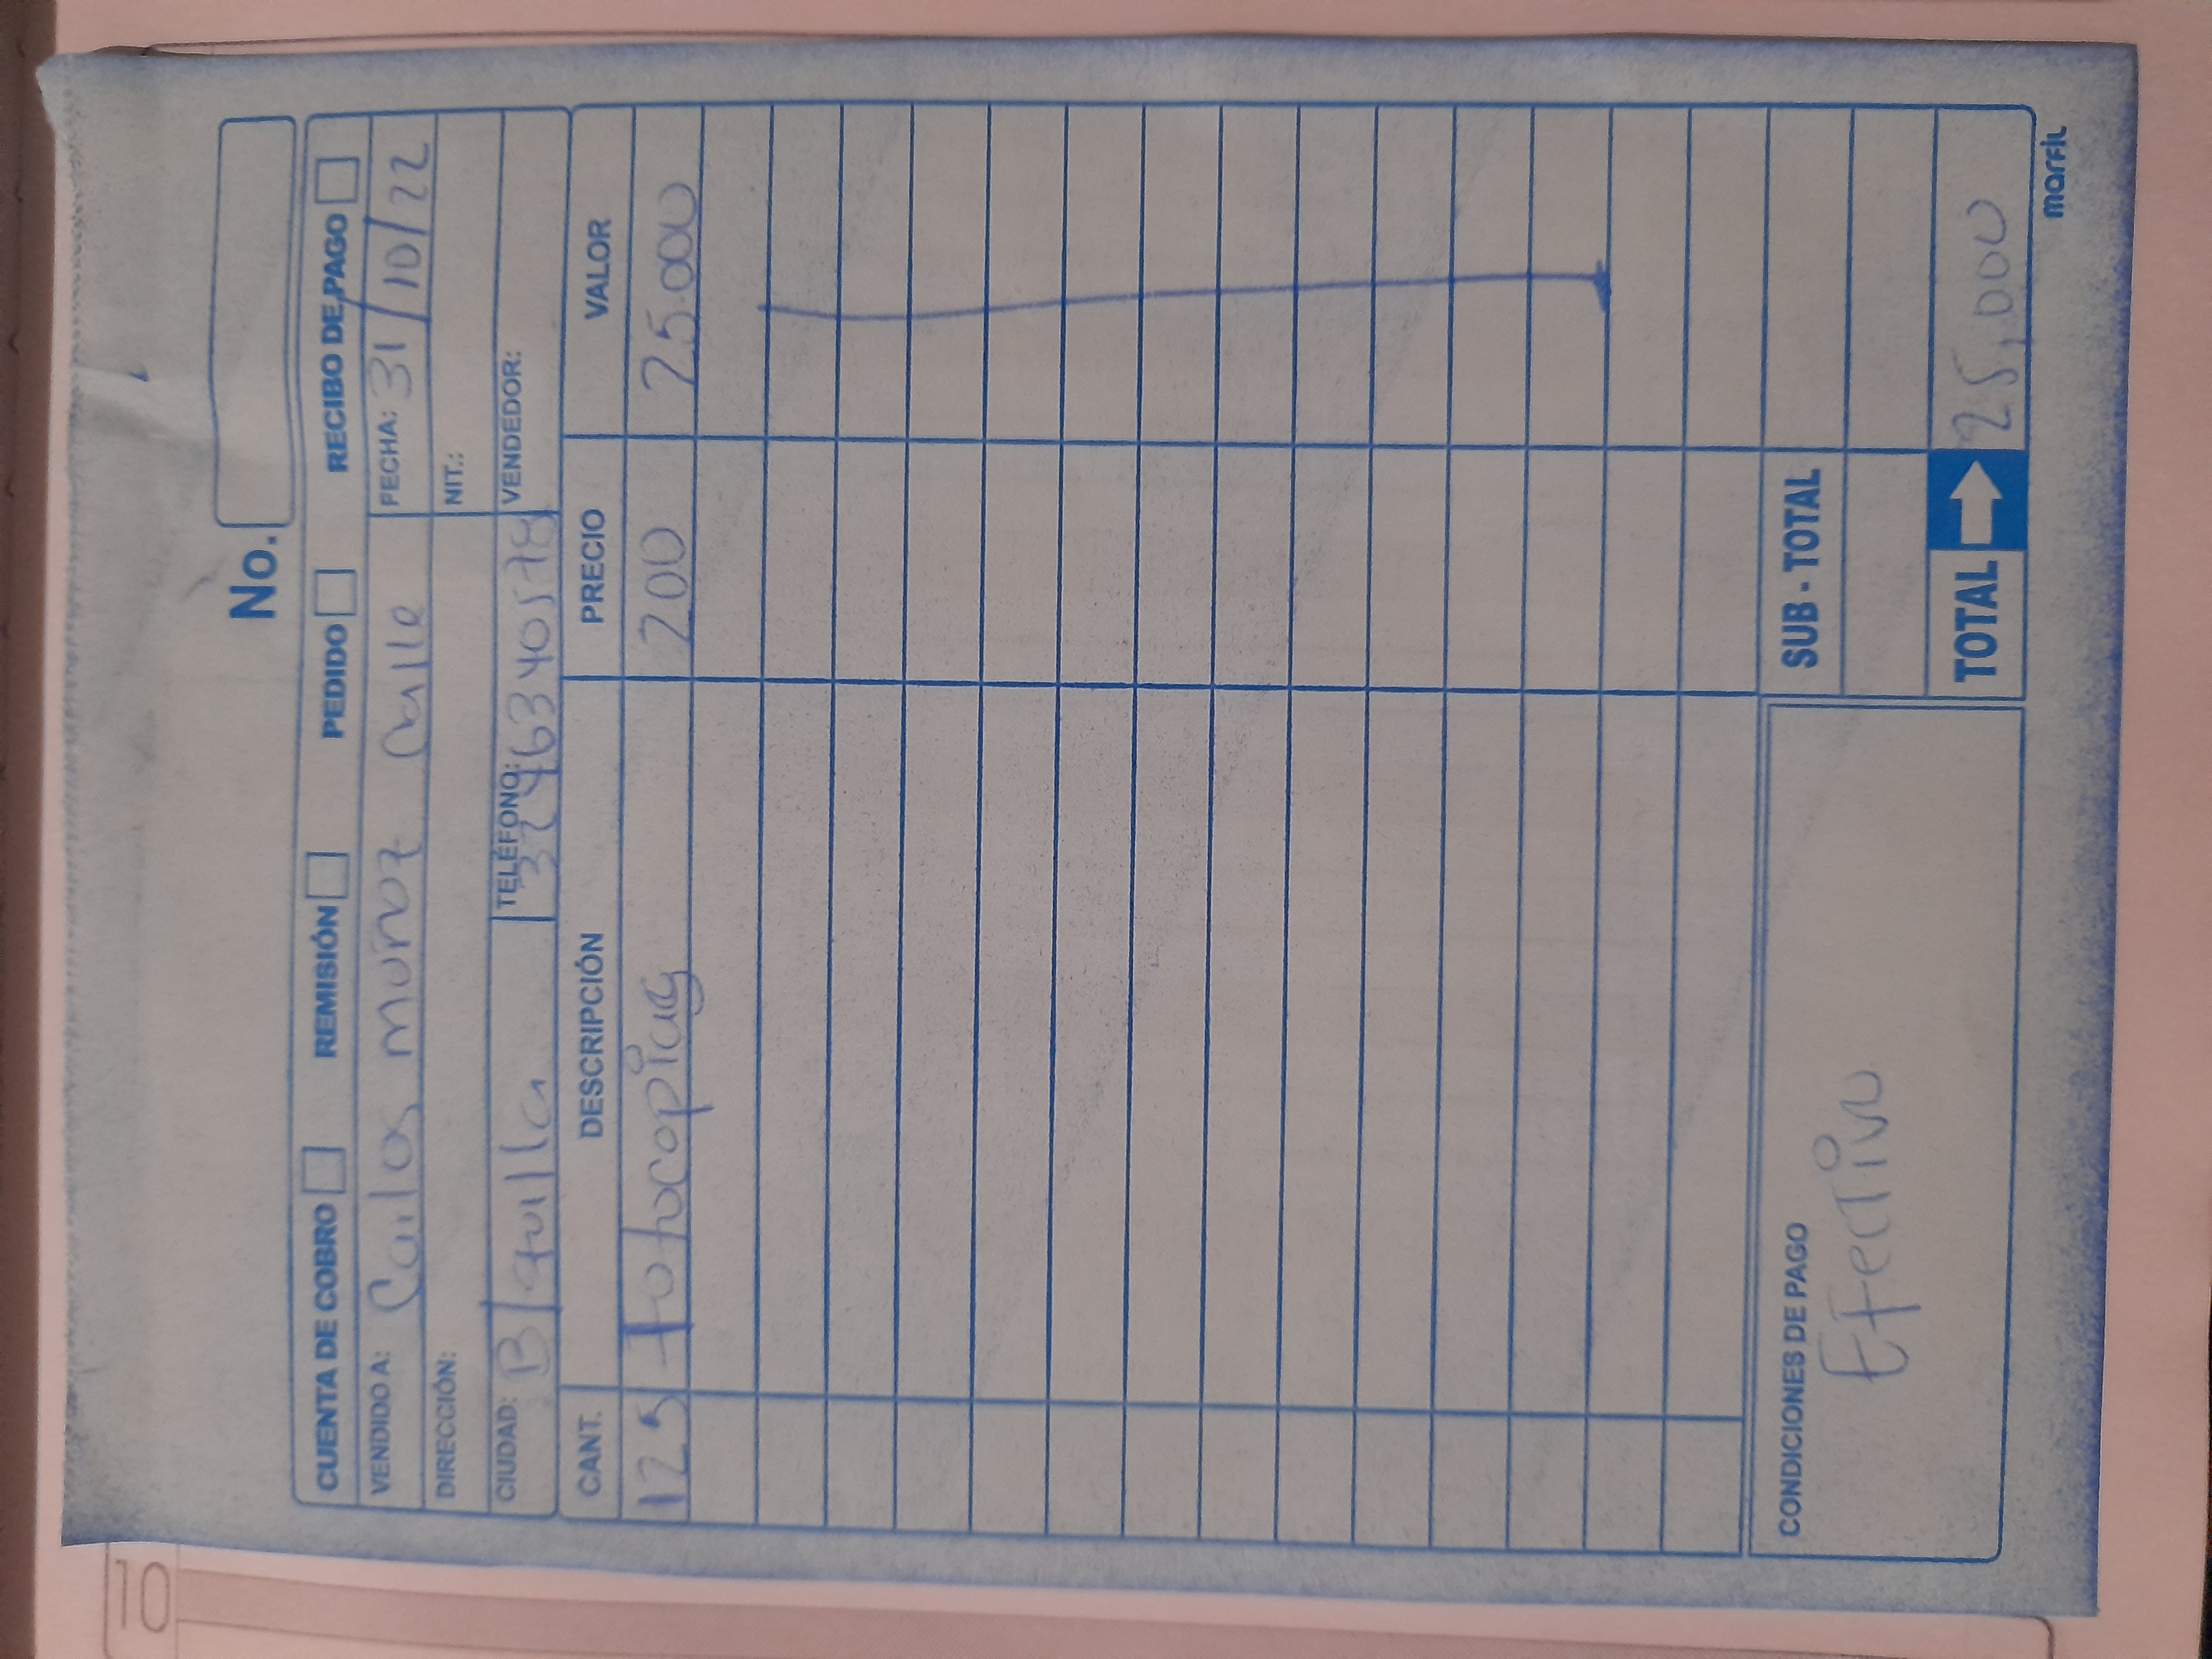 No.
CUENTA DE COBRO REMISIÓN PEDIDO RECIBO DE PAGO
VENDIDO A: Carlos munoz Calle FECHA: 31/10/22
DIRECCIÓN: NIT.:
CIUDAD: B/quilla TELÉFONO: VENDEDOR:
CANT. DESCRIPCIÓN PRECIO VALOR
125 fotocopias 200 25.000
CONDICIONES DE PAGO SUB - TOTAL
Efectivo
TOTAL 25,000
marfil
10